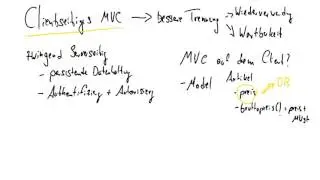 Clientseitiges MVC → bessere Trennung → Wiederverwendg
→ Wartbarkeit
zwingend Serverseitig
- persistente Datenhaltung
- Authentifizierg + Autorisierg
MVC auf dem Client?
- Model Artikel
- preis → DB
- bruttopreis() = preis *
MWSt